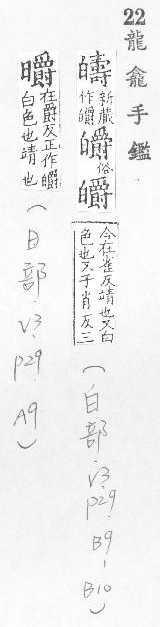 22
龍龕手鑑
新藏作皭俗皭皭
今在雀反靖也又白色也又子肖反三
(白部.V3.P29.B9-B10)
皭在爵反正作皭白色也靖也
(日部.V3.P29.A9)